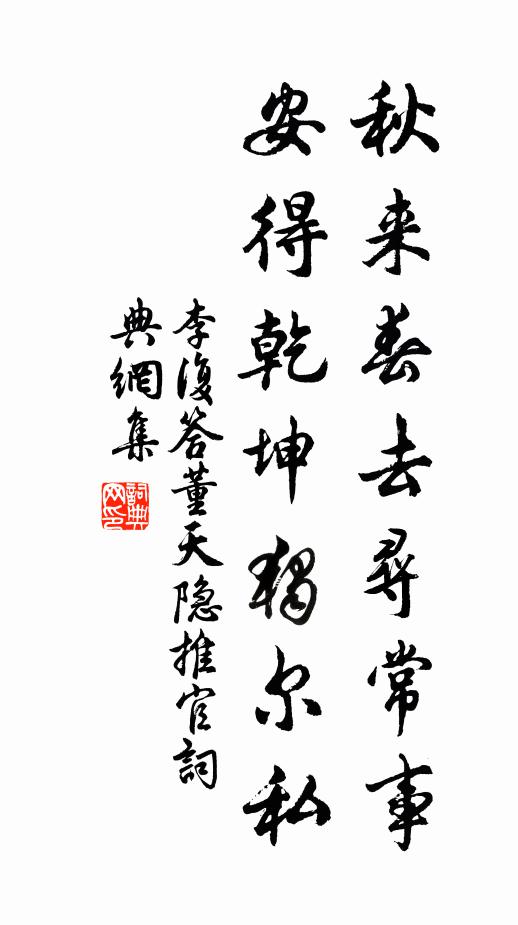 秋来春去尋常事
安得乾坤獨尔私
李復答董天隐推官詞
典網集
詞典網印